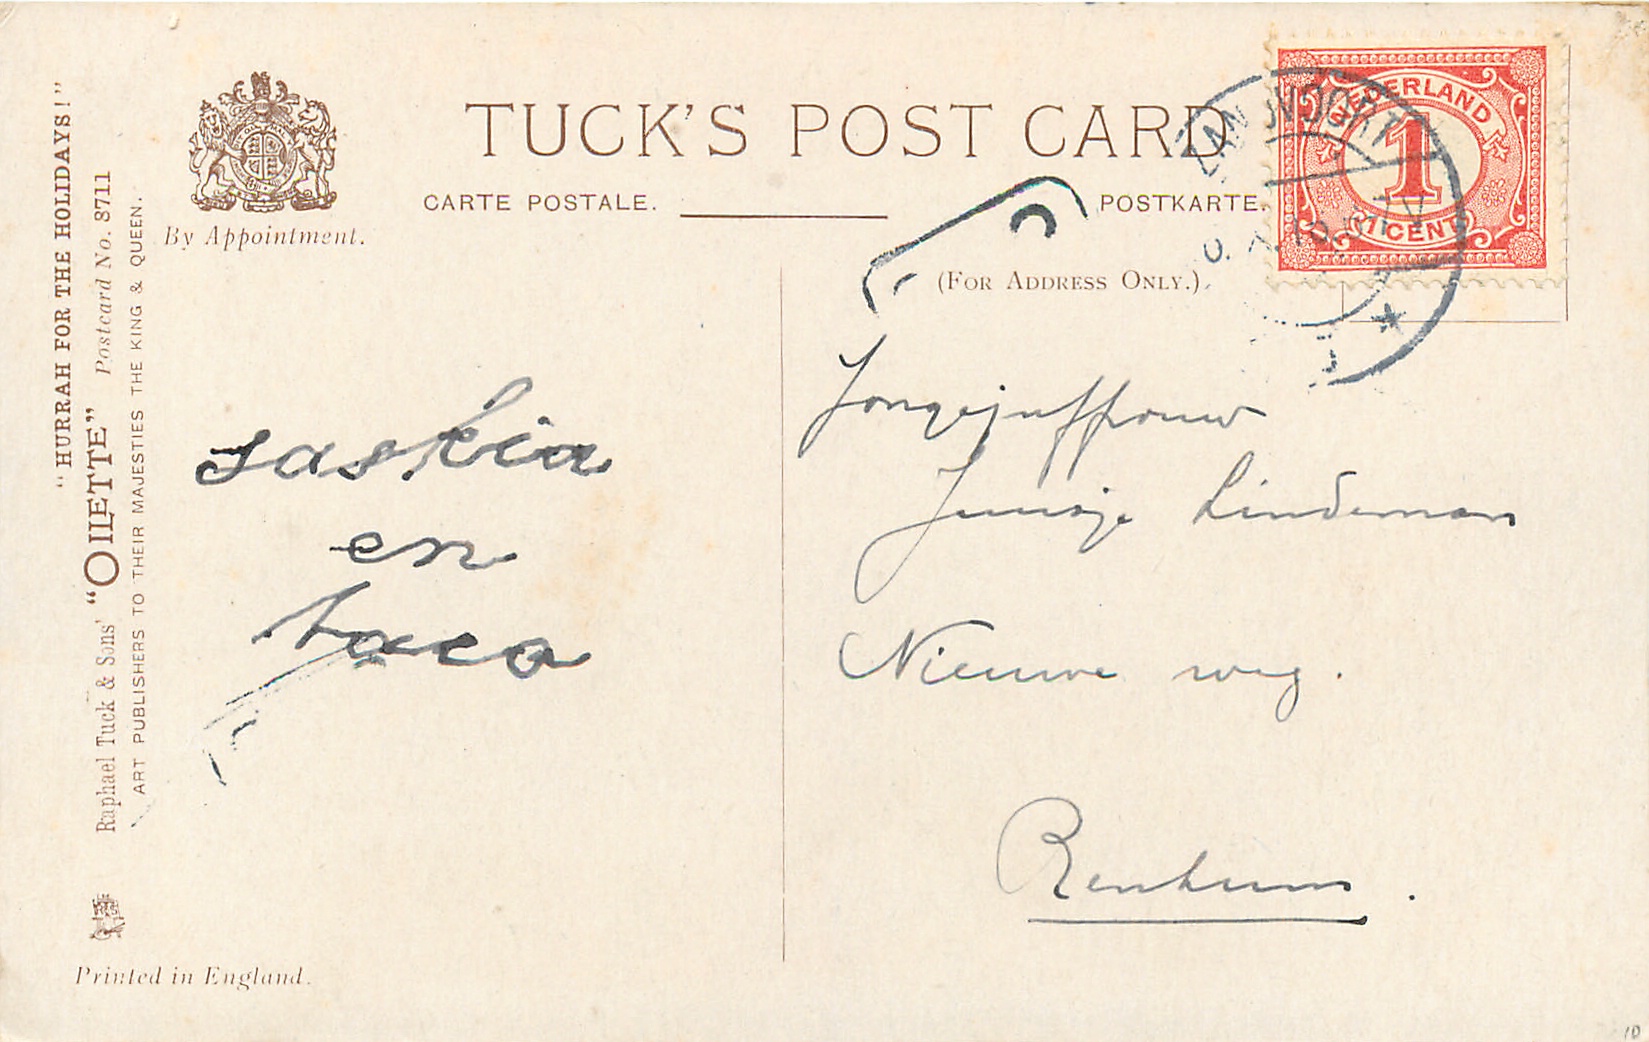 "HURRAH FOR THE HOLIDAYS!"
Raphael Tuck & Sons' "OILETTE" Postcard No. 8711
ART PUBLISHERS TO THEIR MAJESTIES THE KING & QUEEN.
By Appointment.
TUCK'S POST CARD
CARTE POSTALE.
POSTKARTE.
(FOR ADDRESS ONLY.)
NEDERLAND
1
1 CENT
ZANDVOORT
saskia
en
taco
Jongejuffrouw
Juusje Lindeman
Nieuwe weg.
Renkum.
Printed in England.
10